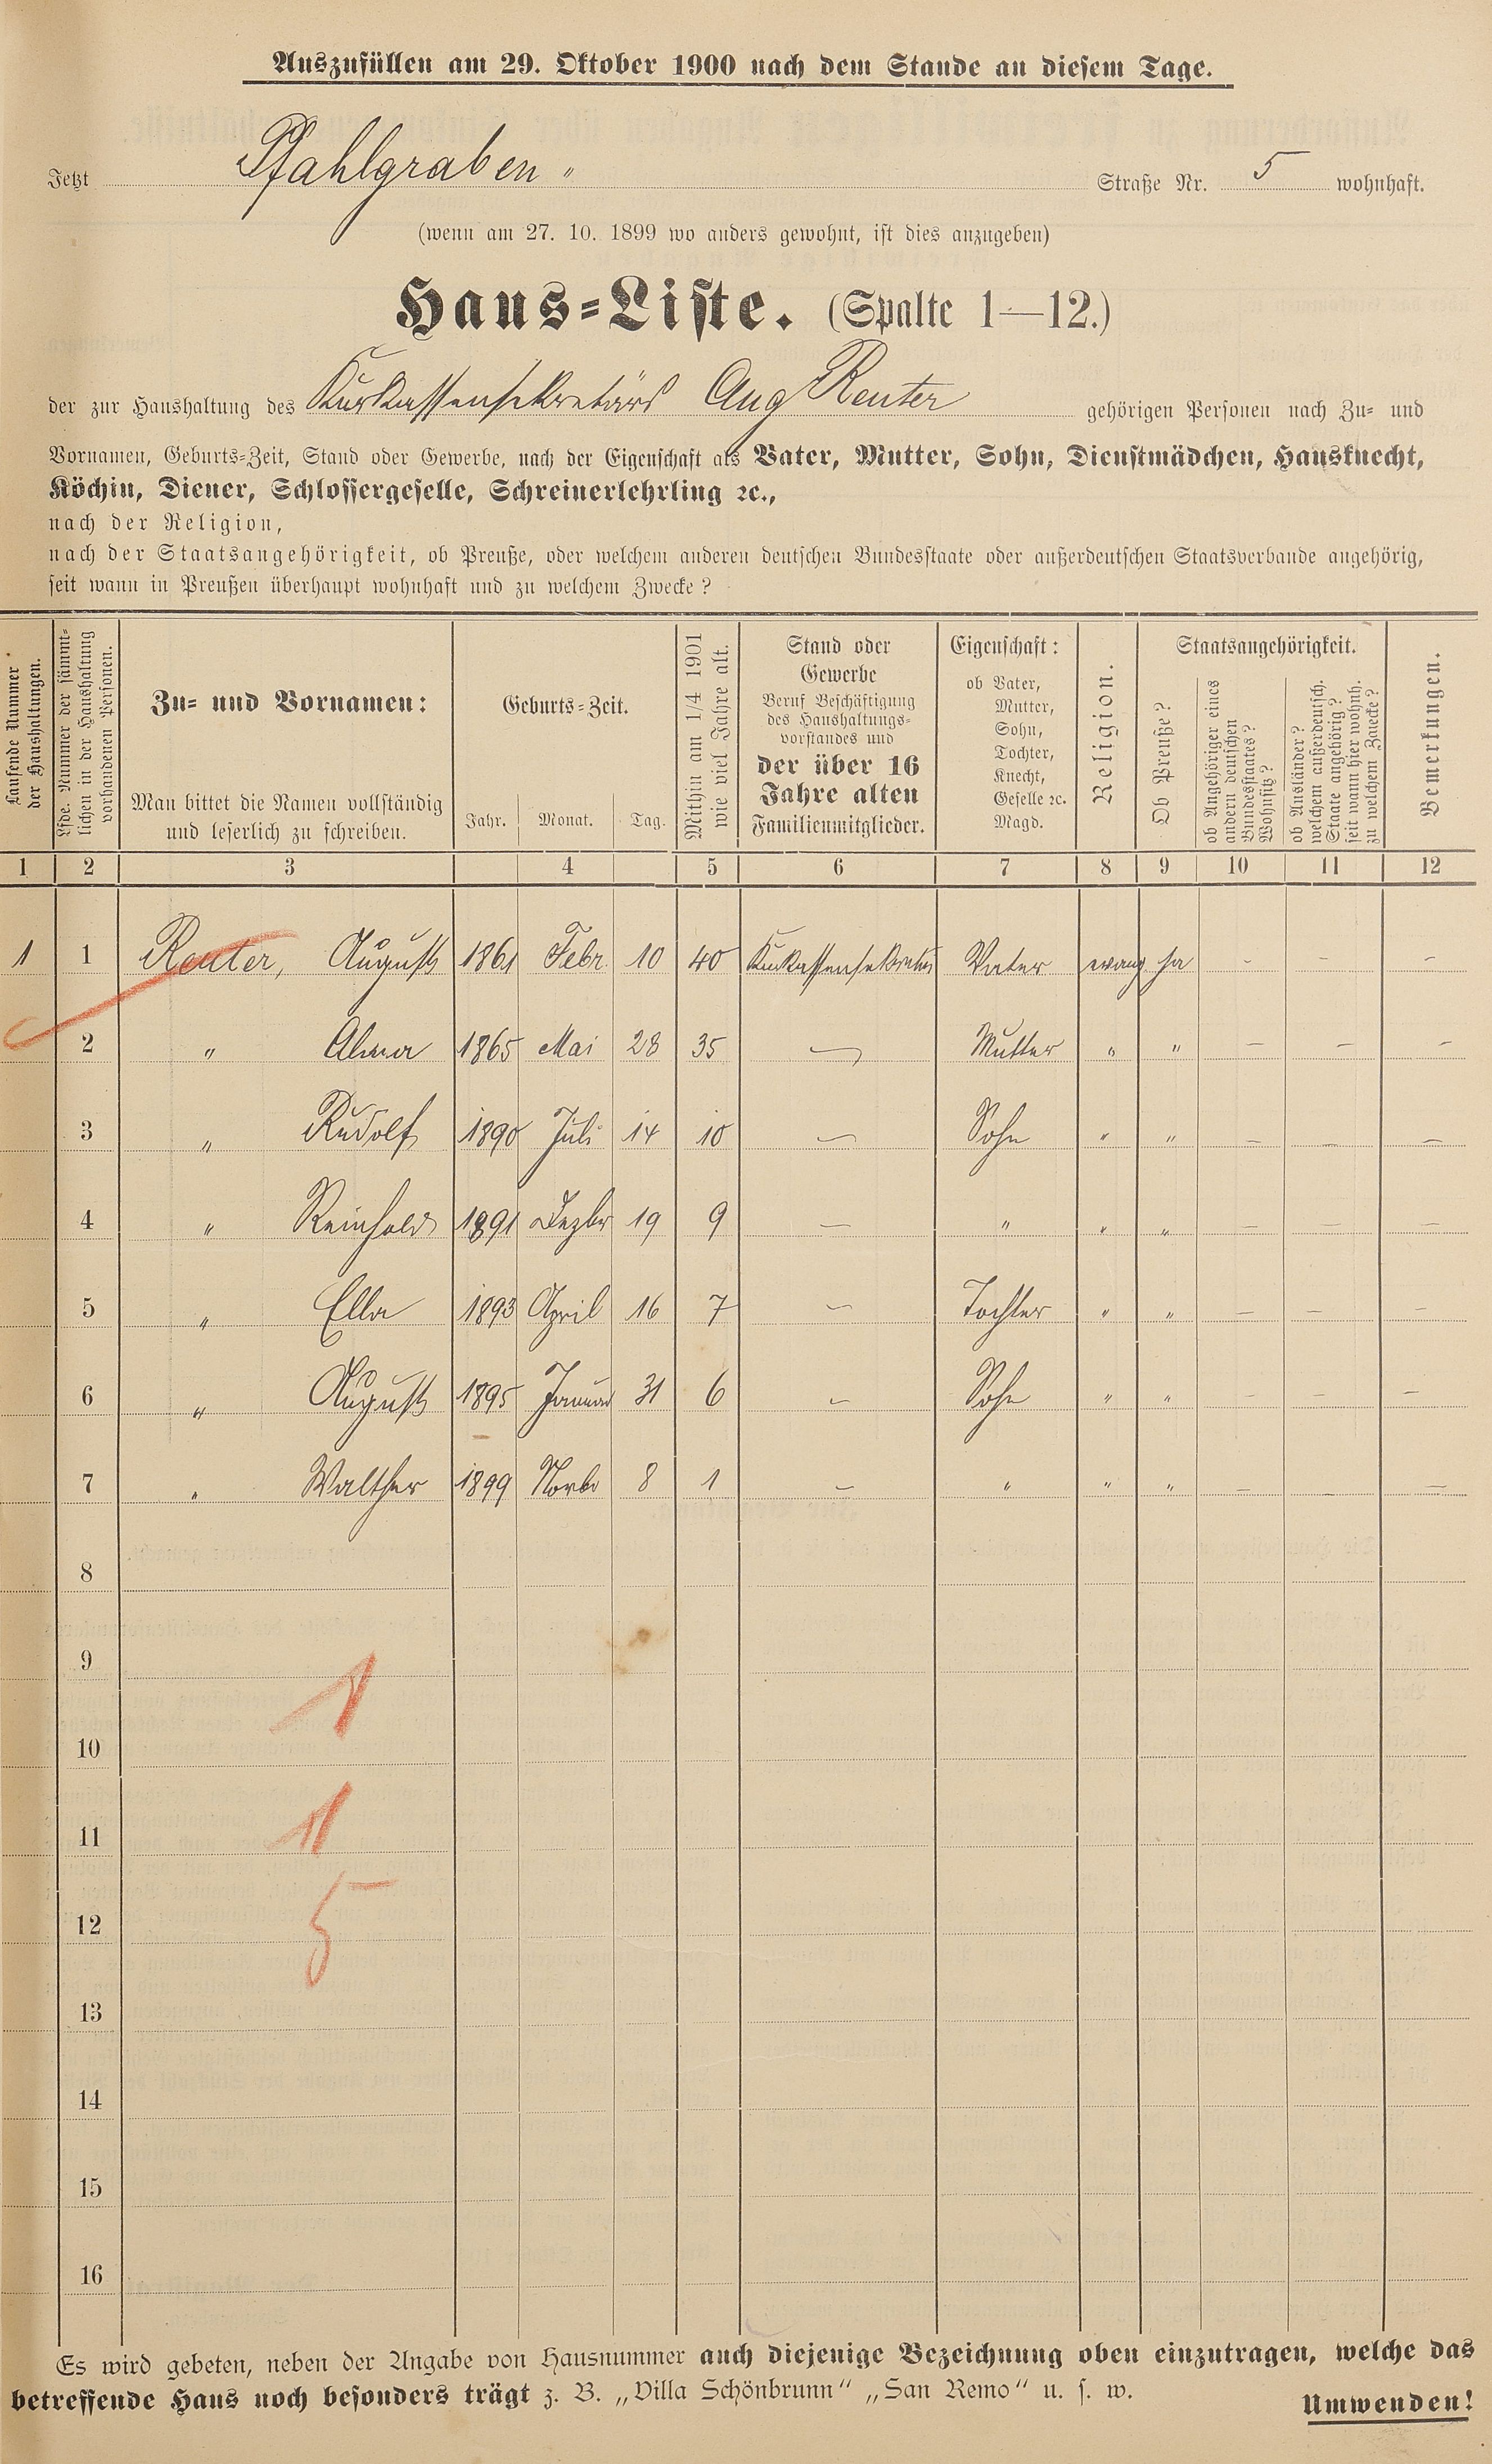 Auszufüllen am 29. Oktober 1900 nach dem Stande an diesem Tage.
Jetzt Pfahlgraben " Straße Nr. 5 wohnhaft.
(wenn am 27. 10. 1899 wo anders gewohnt, ist dies anzugeben)
Haus=Liste. (Spalte 1—12.)
der zur Haushaltung des Kurkassensekretärs Aug Reuter gehörigen Personen nach Zu= und
Vornamen, Geburts=Zeit, Stand oder Gewerbe, nach der Eigenschaft als Vater, Mutter, Sohn, Dienstmädchen, Hausknecht,
Köchin, Diener, Schlossergeselle, Schreinerlehrling ꝛc.,
nach der Religion,
nach der Staatsangehörigkeit, ob Preuße, oder welchem anderen deutschen Bundesstaate oder außerdeutschen Staatsverbande angehörig,
seit wann in Preußen überhaupt wohnhaft und zu welchem Zwecke?
Laufende Nummer
der Haushaltungen.
Lfde. Nummer der sämmt=
lichen in der Haushaltung
vorhandenen Personen.
Zu= und Vornamen:
Man bittet die Namen vollständig
und leserlich zu schreiben.
Geburts=Zeit.
Jahr. Monat. Tag.
Mithin am 1/4 1901
wie viel Jahre alt.
Stand oder
Gewerbe
Beruf Beschäftigung
des Haushaltungs=
vorstandes und
der über 16
Jahre alten
Familienmitglieder.
Eigenschaft:
ob Vater,
Mutter,
Sohn,
Tochter,
Knecht,
Geselle ꝛc.
Magd.
Religion.
Staatsangehörigkeit.
Ob Preuße?
ob Angehöriger eines
andern deutschen
Bundesstaates?
Wohnsitz?
ob Ausländer?
welchem außerdeutsch.
Staate angehörig?
seit wann hier wohnh.
zu welchem Zwecke?
Bemerkungen.
1 2 3 4 5 6 7 8 9 10 11 12
1 1 Reuter, August 1861 Febr. 10 40 Kurkassensekretär Vater evang. ja - - -
2 " Alma 1865 Mai 28 35 — Mutter " " — — —
3 " Rudolf 1890 Juli 14 10 — Sohn " " — — —
4 " Reinhold 1891 Dezbr 19 9 — " " " — — —
5 " Ella 1893 April 16 7 — Tochter " " — — —
6 " August 1895 Januar 31 6 — Sohn " " — — —
7 " Walther 1899 Novbr 8 1 — " " " — — —
8
9
1
10
11
11
5
12
13
14
15
16
Es wird gebeten, neben der Angabe von Hausnummer auch diejenige Bezeichnung oben einzutragen, welche das
betreffende Haus noch besonders trägt z. B. „Villa Schönbrunn“ „San Remo“ u. s. w.
Umwenden!